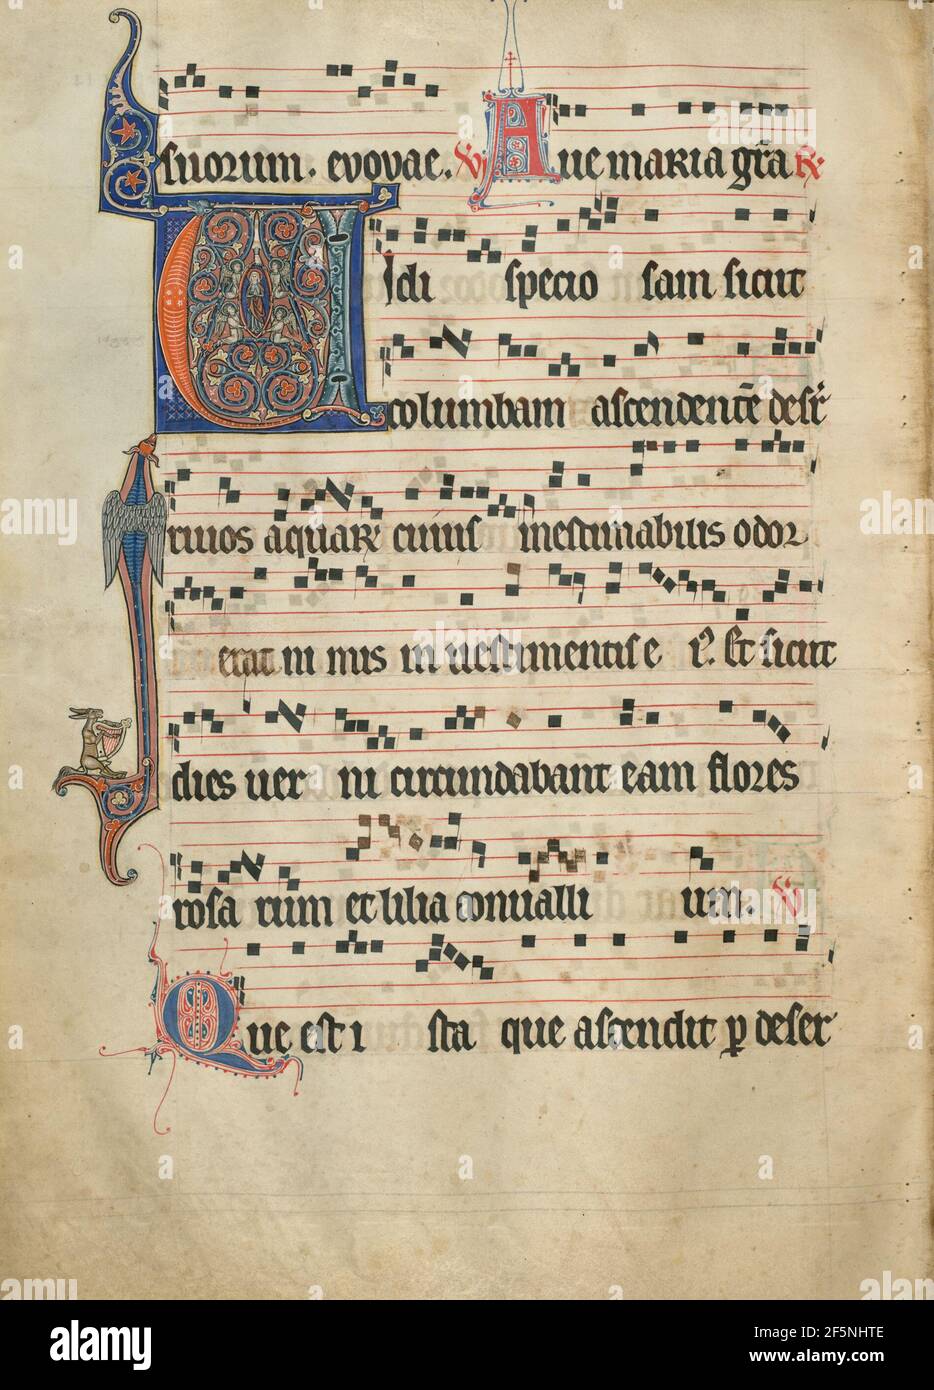 suorum. evovae. V Aue maria gr̃a R
VIdi specio sam sicut
columbam ascendentẽ desr̉
riuos aquaR cuius inestimabilis odor
erat ni mis in uestimentis e iꝰ. Et sicut
dies uer ni circundabant eam flores
rosa rum et lilia conualli um. V
Que est i sta que ascendit ꝑ deser
alamy
Image ID: 2F5NHTE
www.alamy.com